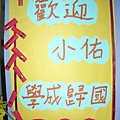 歡迎
小佑
學成歸國